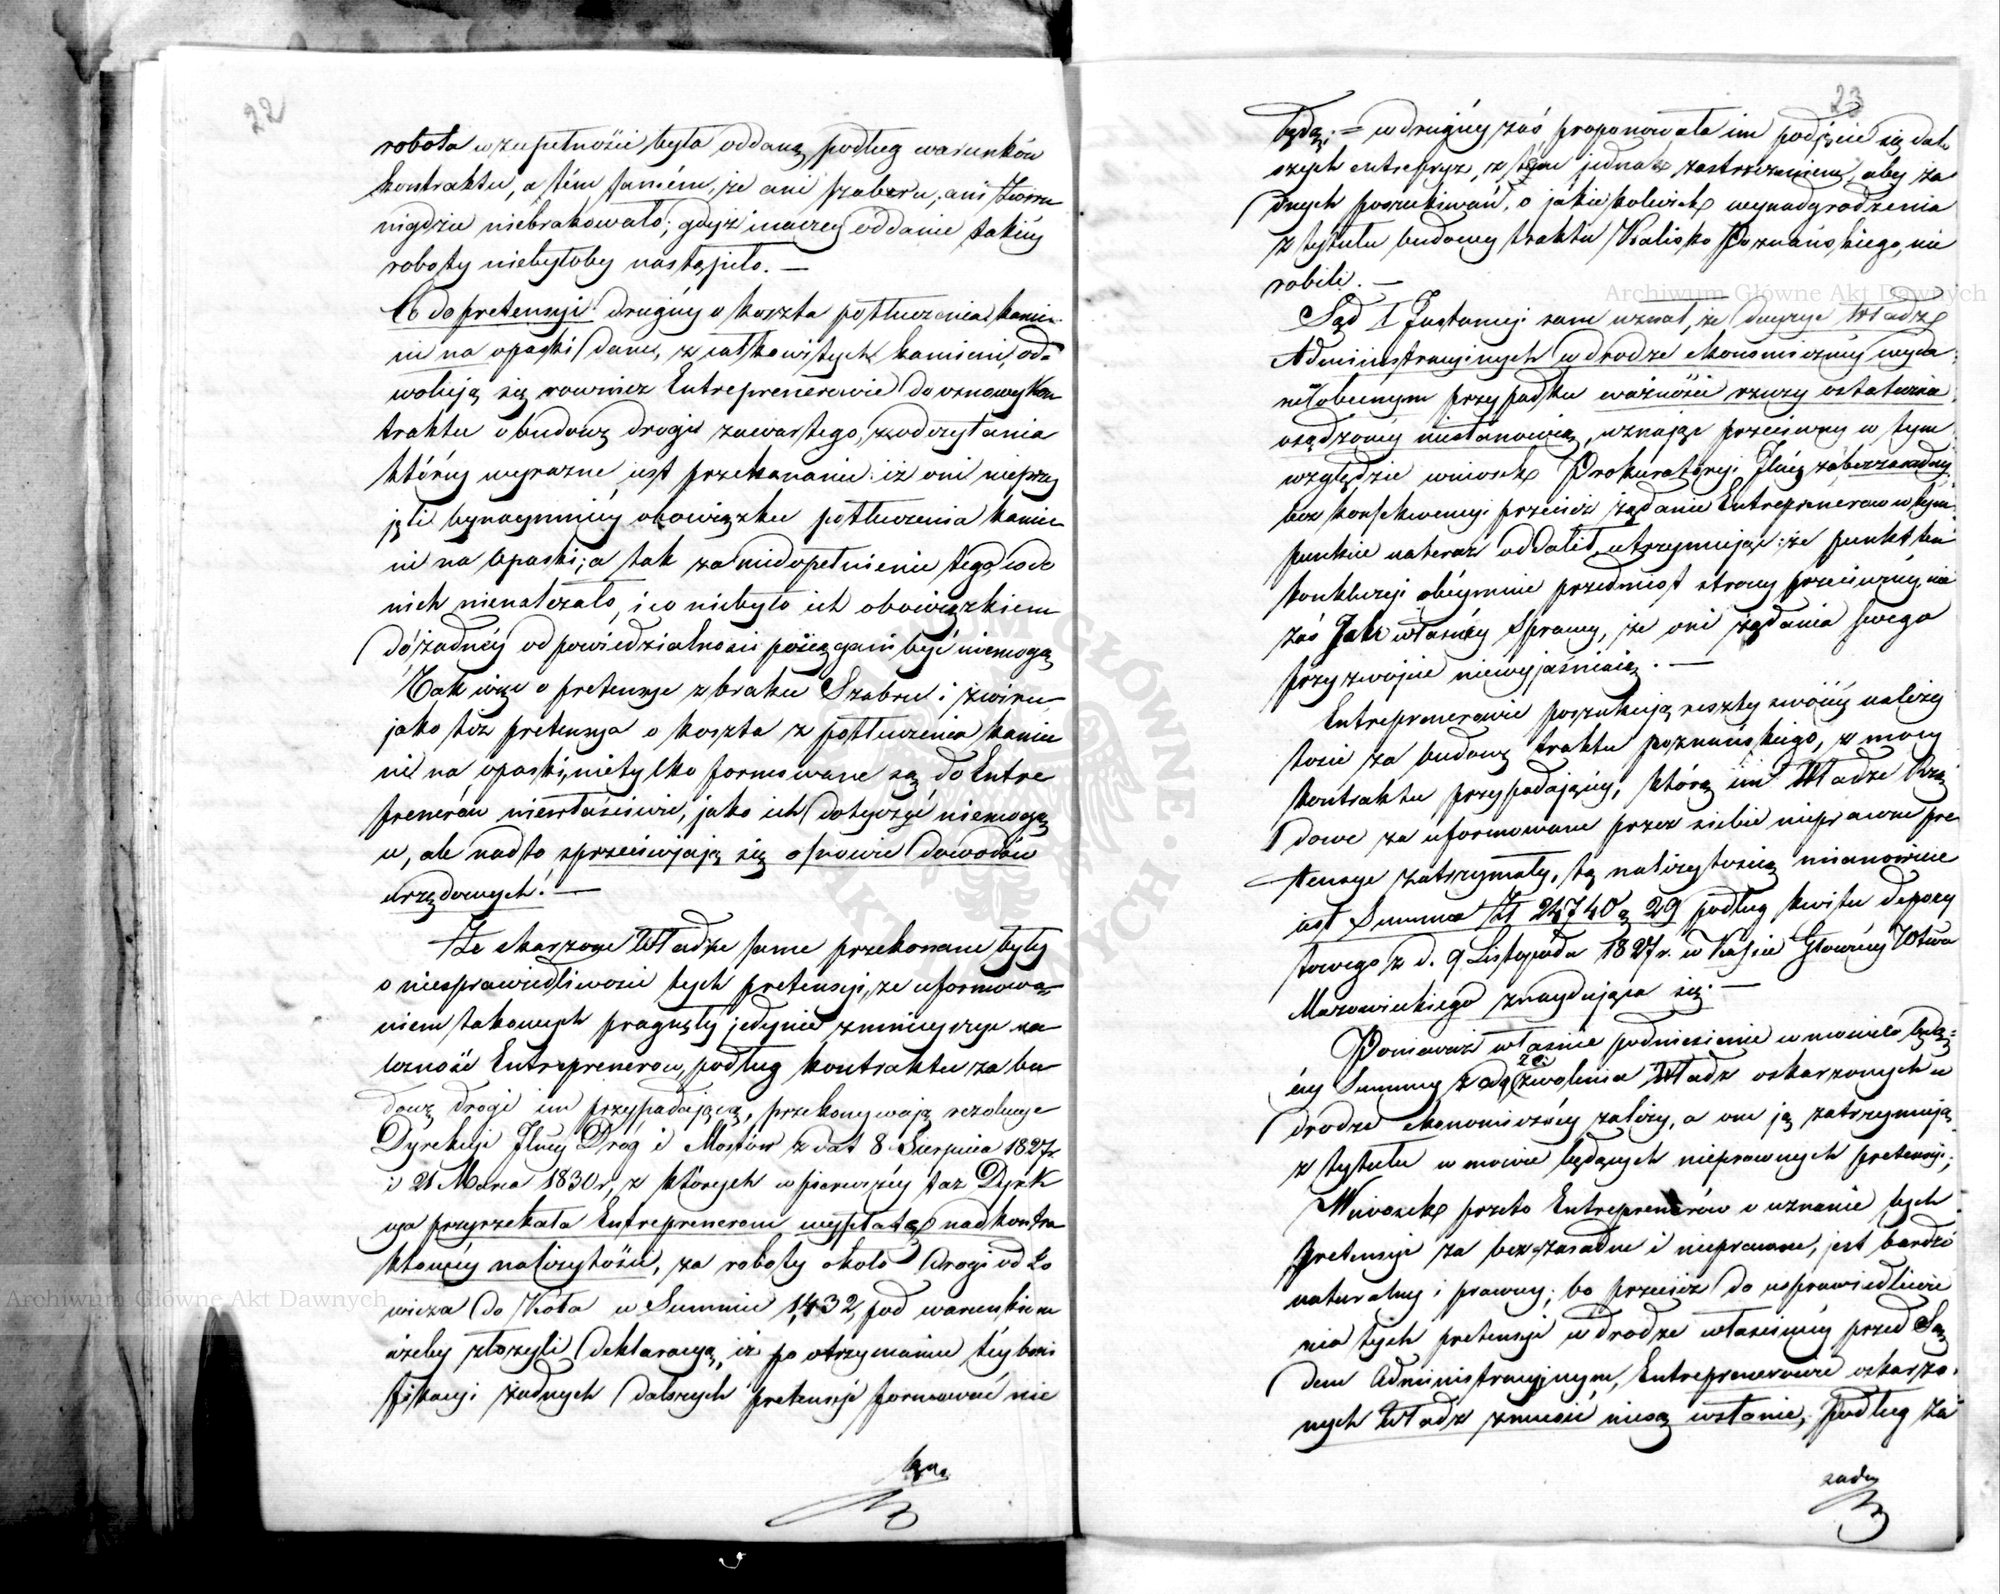 22
robota w zupełności była oddaną podług warunków
kontraktu, a tém samém, że ani szabru, ani żwiru
nigdzie niebrakowało; gdyż inaczey oddanie takiéy
roboty niebyłoby nastąpiło. —
Co do pretensyi drugiéy o koszta potłuczenia kamie
ni na opaski dane, z całkowitych kamieni, od
wołują się rownież Entreprenerowie do osnowy Kon
traktu o budowę drogi zawartego, z odczytania
któréy wyrazne jest przekonanie: iż oni nieprzy
jęli bynaymniéy obowiązku potłuczenia kamie
ni na opaski; a tak za niedopełnienie tego, co do
nich nienależało, i co niebyło ich obowiązkiem
do żadnéy odpowiedzialności pociągani być niemogą
Tak więc o pretensye z braku Szabru i żwiru
jako też pretensya o koszta z potłuczenia kamie
ni na opaski, nietylko formowane są do Entre
prenerów niewłaściwie, jako ich dotyczyć niemogąc
e, ale nadto sprzeciwiają się osnowie dowodów
urzędowych. —
Że skarzone Władze same przekonane były
o niesprawiedliwości tych pretensyi, ze uformowa=
niem takowych pragnęły jedynie zmnieyszyć na
leżność Entreprenerow, podług kontraktu za bu
dowę drogi im przypadającą, przekonywają rezolucye
Dyrekcyi Jlnéy Dróg i Mostów z dat 8 Sierpnia 1827 r
i 21 Marca 1830 r, z których w pierwszéy taż Dyrek
cya przyrzekała Entreprenerom wypłatę nadkontra
ktowéy należytości, za roboty około drogi od Ło
wicza do Koła w Summie 1,432, pod warunkiem
ażeby złożyli deklaracyą, iż po otrzymaniu téy boni
fikacyi żadnych dalszych pretensyi formować nie
będą
23
będą; = w drugiéy zaś proponowała im podjęcie się dal
szych entrepryz, z tym jednak zastrzeżeniem, aby ża
dnych poszukiwań, o jakiekolwiek wynadgrodzenia
z tytułu budowy traktu Kalisko Poznańskiego, nie
robili. —
Sąd I Jnstancyi sam uznał, że decyzye Władz
Administracyinych w drodze ekonomicznéy wyda
ne w obecnym przypadku ważności rzeczy ostatecznie
osądzonéy niestanowią, uznając przeciwny w tym
względzie wniosek Prokuratoryi Jlnéy za bezzasadny
bez konsekwencyi przecież żądanie Entreprenerow w tym
punkcie nateraz oddalił, utrzymując: że punkt ten
konkluzyi obéymuie przedmiot strony przeciwnéy, nie
zaś Jch własnéy Sprawy, że oni żądania swego
przyzwoicie niewyjaśniaią. —
Entreprenerowie poszukują reszty swoiéy należy
tości za budowę traktu poznańskiego, z mocy
kontraktu przypadającéy, którą im Władze Rzą
dowe za uformowane przez siebie nieprawne pre
tensye zatrzymały, tą należytością mianowicie
jest Summa Zł 24,740 g 29 podług kwitu depozy
towego z d. 9 Listopada 1827 r. w Kassie Głównéy Wtwa
Mazowieckiego znaydująca się. —
Ponieważ właśnie podniesienie w mowie będą=
céy Summy zależy od zezwolenia Władz oskarżonych w
drodze ekonomicznéy zależy, a one ją zatrzymują
z tytułu w mowie będących nieprawnych pretensyi;
Wniosek przeto Entreprenerów o uznanie tych
pretensyi za bezzasadne i nieprawne, jest bardzo
naturalny i prawny; bo przecież do usprawiedliwie
nia tych pretensyi w drodze właściwéy przed Są
dem Administracyjnym, Entreprenerowie oskarżo
nych Władz zmusić niesą wstanie; Podług za
sady